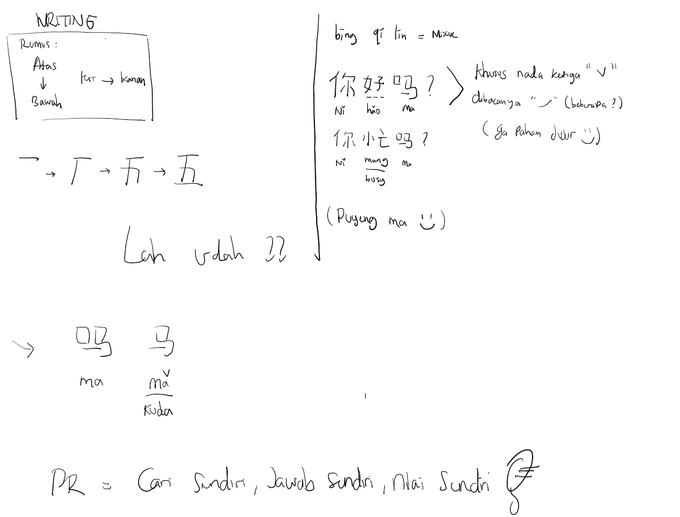 WRITING
Rumus :
Atas
↓
Bawah
kiri → kanan
一 → 丆 → 五 → 五
Lah udah ??
bing qi lin = Mixue
你 好 吗 ?
Ni hao ma
你 忙 吗 ?
Ni mang ma
busy
khusus nada ketiga "ˇ"
dibacanya "ˊ" (beberapa?)
(ga paham dulur)
(Puyeng ma)
→ 吗 马
ma mǎ
kuda
PR = Cari Sendiri, Jawab Sendiri, Nilai Sendiri